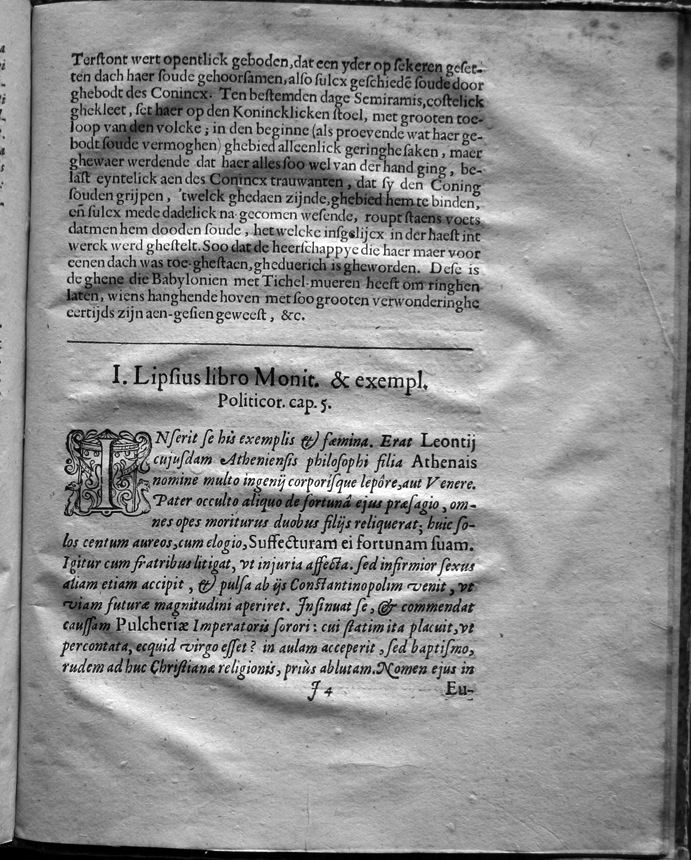 Terſtont wert opentlick geboden, dat een yder op ſekeren geſet-
ten dach haer ſoude gehoorſamen, alſo ſulcx geſchiedē ſoude door
ghebodt des Conincx. Ten beſtemden dage Semiramis, coſtelick
ghekleet, ſet haer op den Konincklicken ſtoel, met grooten toe-
loop van den volcke; in den beginne (als proevende wat haer ge-
bodt ſoude vermoghen) ghebied alleenlick geringhe ſaken, maer
ghewaer werdende dat haer alles ſoo wel van der hand ging, be-
laſt eyntelick aen des Conincx trauwanten, dat ſy den Coning
ſouden grijpen, 'twelck ghedaen zijnde, ghebied hem te binden,
eñ ſulcx mede dadelick na gecomen weſende, roupt ſtaens voets
datmen hem dooden ſoude, het welcke inſgelijcx in der haeſt int
werck werd gheſtelt. Soo dat de heerſchappye die haer maer voor
eenen dach was toe-gheſtaen, gheduerich is gheworden. Deſe is
de ghene die Babylonien met Tichel-mueren heeft om ringhen
laten, wiens hanghende hoven met ſoo grooten verwonderinghe
eertijds zijn aen-geſien geweeſt, &c.
I. Lipſius libro Monit. & exempl.
Politicor. cap. 5.
INſerit ſe his exemplis & fæmina. Erat Leontij
cujuſdam Athenienſis philoſophi filia Athenais
nomine multo ingenij corporiſque lepôre, aut Venere.
Pater occulto aliquo de fortunâ ejus præſagio, om-
nes opes moriturus duobus filijs reliquerat; huic ſo-
los centum aureos, cum elogio, Suffecturam ei fortunam ſuam.
Igitur cum fratribus litigat, vt injuria affecta. ſed infirmior ſexus
aliam etiam accipit, & pulſa ab ijs Conſtantinopolim venit, vt
viam futuræ magnitudini aperiret. Inſinuat ſe, & commendat
cauſſam Pulcheriæ Imperatoris ſorori: cui ſtatim ita placuit, vt
percontata, ecquid virgo eſſet? in aulam acceperit, ſed baptiſmo,
rudem ad huc Chriſtianæ religionis, priùs ablutam. Nomen ejus in
I 4
Eu-